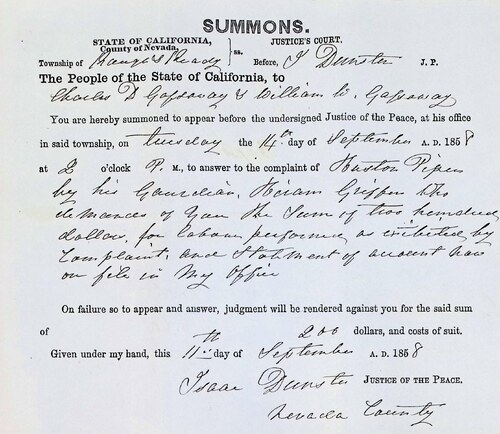 SUMMONS.
STATE OF CALIFORNIA, JUSTICE'S COURT.
County of Nevada, ss.
Township of Rough & Ready Before, I Dunster J. P.
The People of the State of California, to
Charles D Gassaway & William W. Gassaway
You are hereby summoned to appear before the undersigned Justice of the Peace, at his office
in said township, on tuesday the 14th day of September A. D. 1858
at 2 o'clock P. M., to answer to the complaint of Huston Piper
by his Gaurdian, Hiram Griffin who
demances of you the Sum of two hundred
dollars for labour performed as exibited by
complaint, and Statment of account now
on file in My Office
On failure so to appear and answer, judgment will be rendered against you for the said sum
of 200 dollars, and costs of suit.
Given under my hand, this 11th day of September A. D. 1858
Isaac Dunster JUSTICE OF THE PEACE.
Nevada County